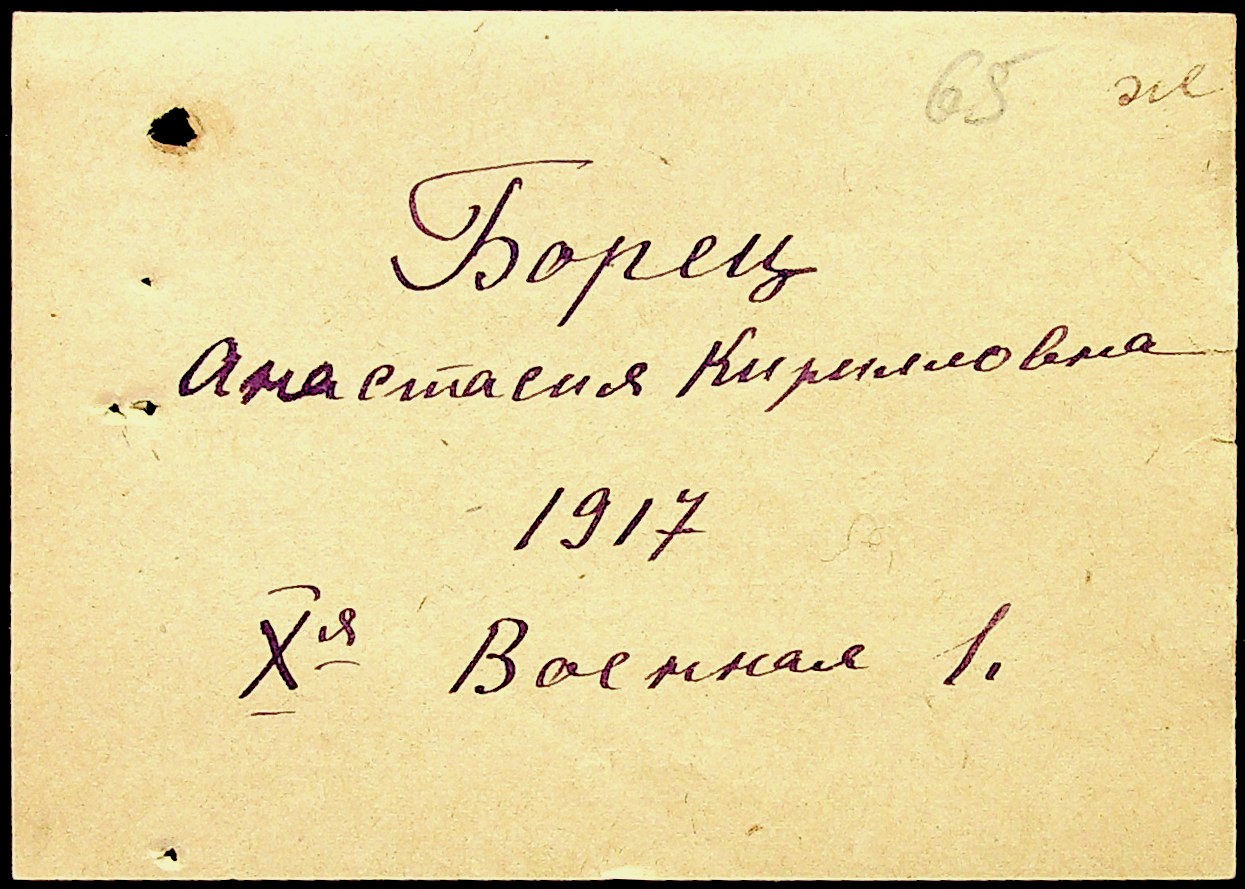 65 ж
Борец
Анастасия Кирилловна
1917
Xя Военная 1.